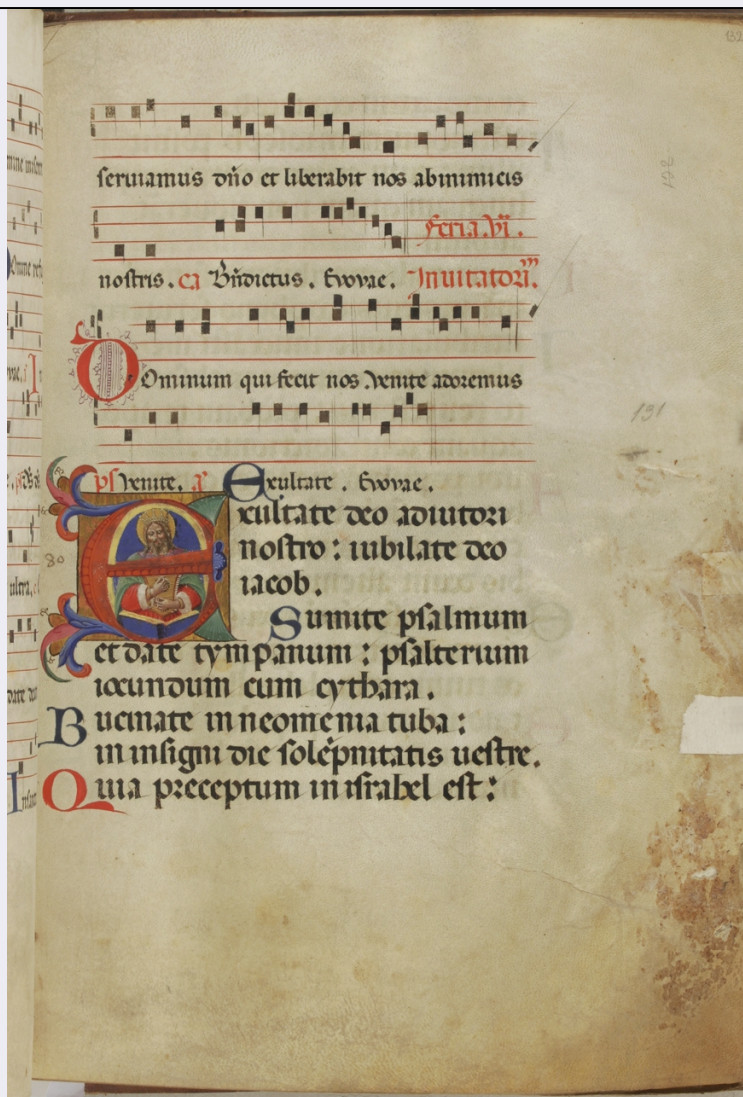 132
seruiamus dño et liberabit nos abinimicis
feria. vi.
nostris. ca Bñdictus. Evovae. Inuitatori.
Dominum qui fecit nos venite adoremus
131
ps venite. a Exultate. Evovae.
Exultate deo adiutori
nostro: iubilate deo
80
iacob.
Sumite psalmum
et date tympanum: psalterium
iocundum cum cythara.
Bucinate in neomenia tuba:
in insigni die solēpnitatis uestre.
Quia preceptum in israhel est: